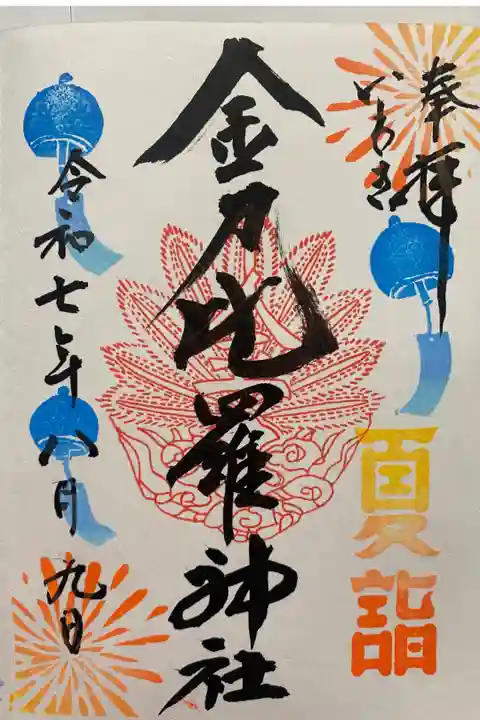 奉拝
いわき
金刀比羅神社
夏詣
令和七年八月九日